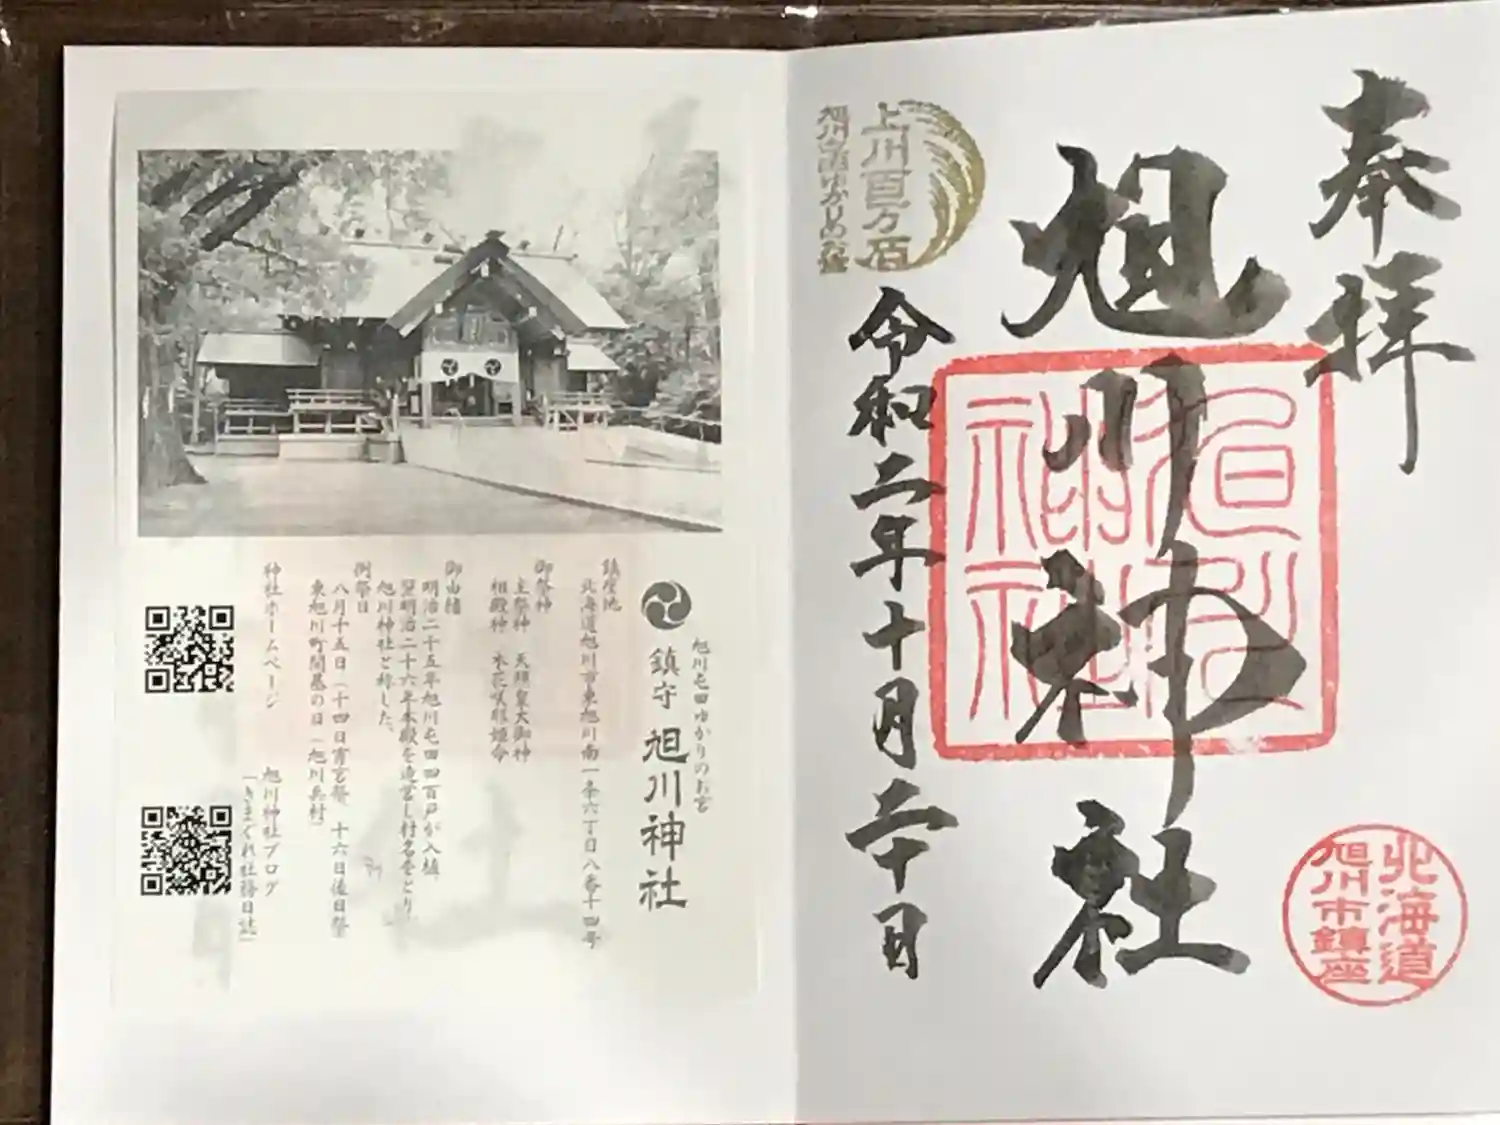 奉拝
旭川神社
上川百万石
令和二年十月二十日
旭川神社
北海道
旭川市鎮座
旭川屯田ゆかりのお宮
鎮守 旭川神社
鎮座地
北海道旭川市東旭川南一条六丁目八番十四号
御祭神
主祭神 天照皇大御神
相殿神 木花咲耶姫命
御由緒
明治二十五年旭川屯田四百戸が入植、
翌明治二十六年本殿を造営し村名をとり、
旭川神社と称した。
例祭日
八月十五日(十四日宵宮祭、十六日後日祭
東旭川町開基の日「旭川兵村」
神社ホームページ
旭川神社ブログ
「きまぐれ社務日誌」